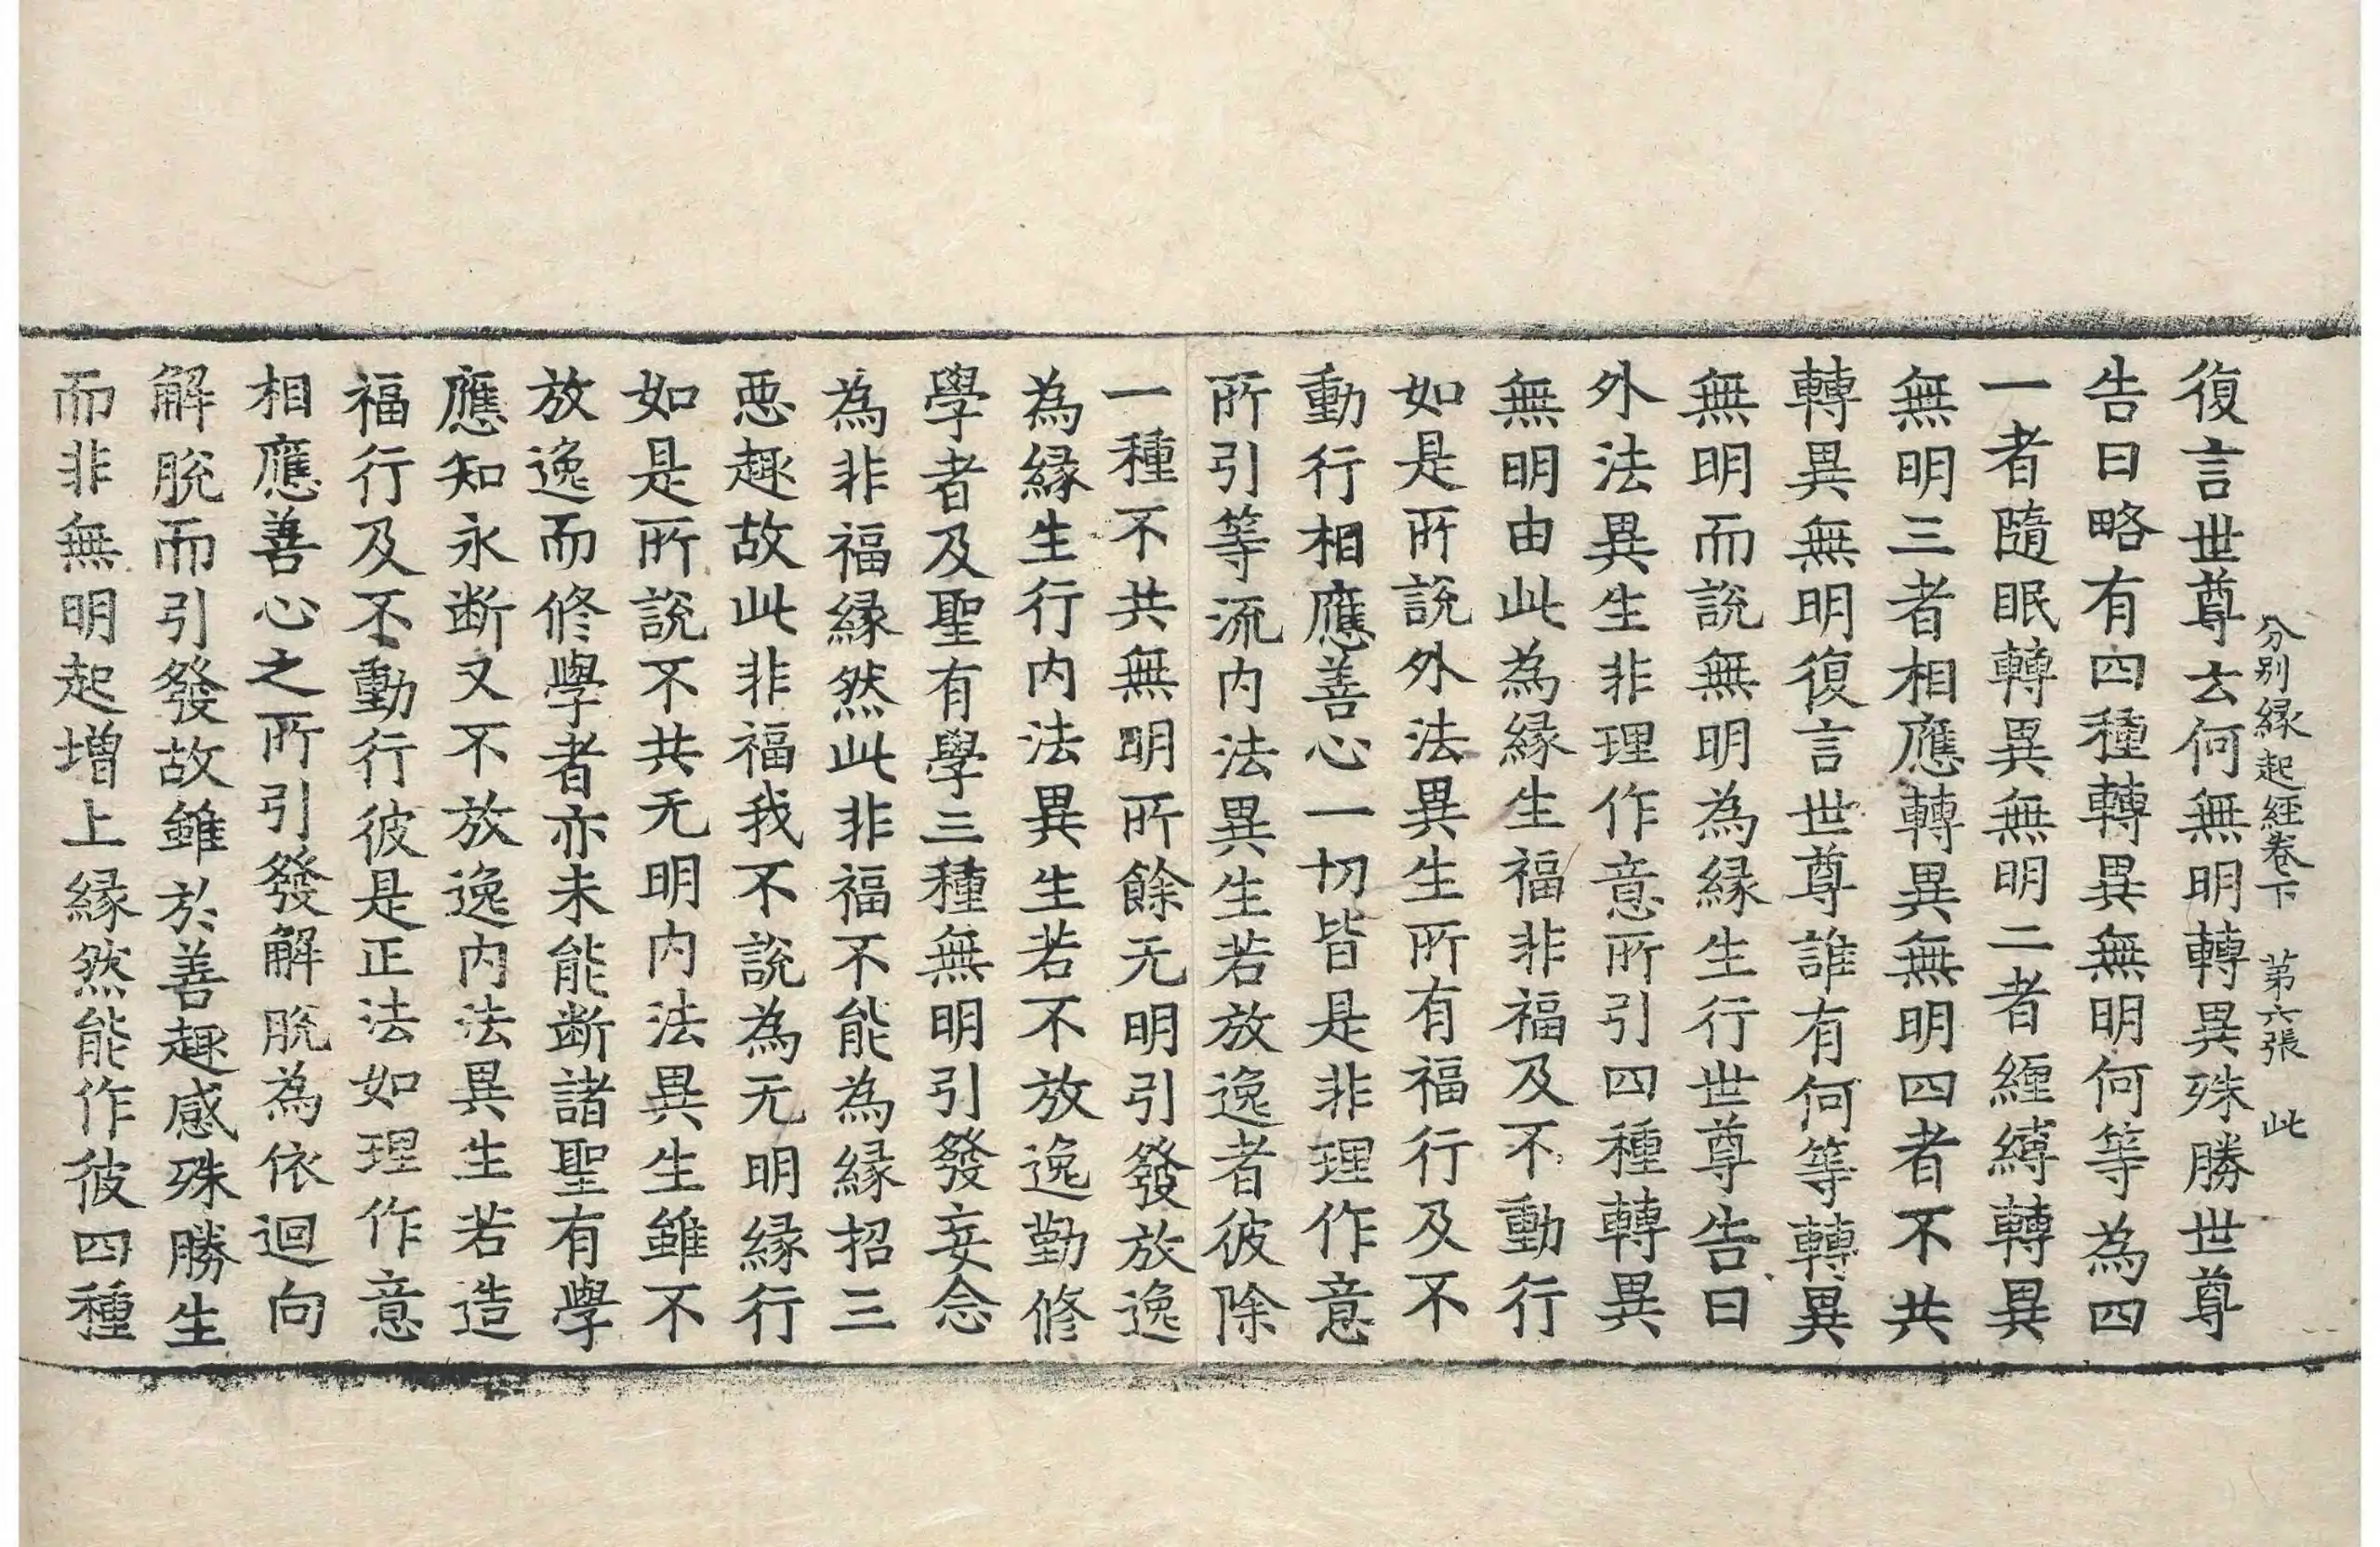 分别縁起經卷下　第六張　此
復言世尊云何無明轉異殊勝世尊
告曰略有四種轉異無明何等為四
一者隨眠轉異無明二者纏縛轉異
無明三者相應轉異無明四者不共
轉異無明復言世尊誰有何等轉異
無明而說無明為縁生行世尊告曰
外法異生非理作意所引四種轉異
無明由此為縁生福非福及不動行
如是所說外法異生所有福行及不
動行相應善心一切皆是非理作意
所引等流内法異生若放逸者彼除
一種不共無明所餘无明引發放逸
為縁生行内法異生若不放逸勤修
學者及聖有學三種無明引發妄念
為非福縁然此非福不能為縁招三
惡趣故此非福我不說為无明縁行
如是所說不共无明内法異生雖不
放逸而修學者亦未能断諸聖有學
應知永断又不放逸内法異生若造
福行及不動行彼是正法如理作意
相應善心之所引發解脫為依迴向
解脫而引發故雖於善趣感殊勝生
而非無明起增上縁然能作彼四種